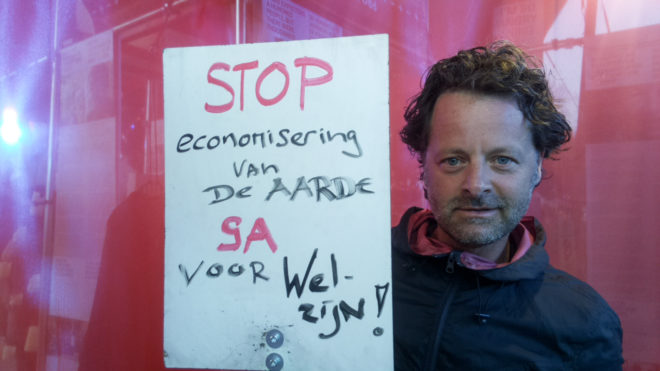 STOP
economisering
van
De AARDE
GA
VOOR Wel-
zijn!